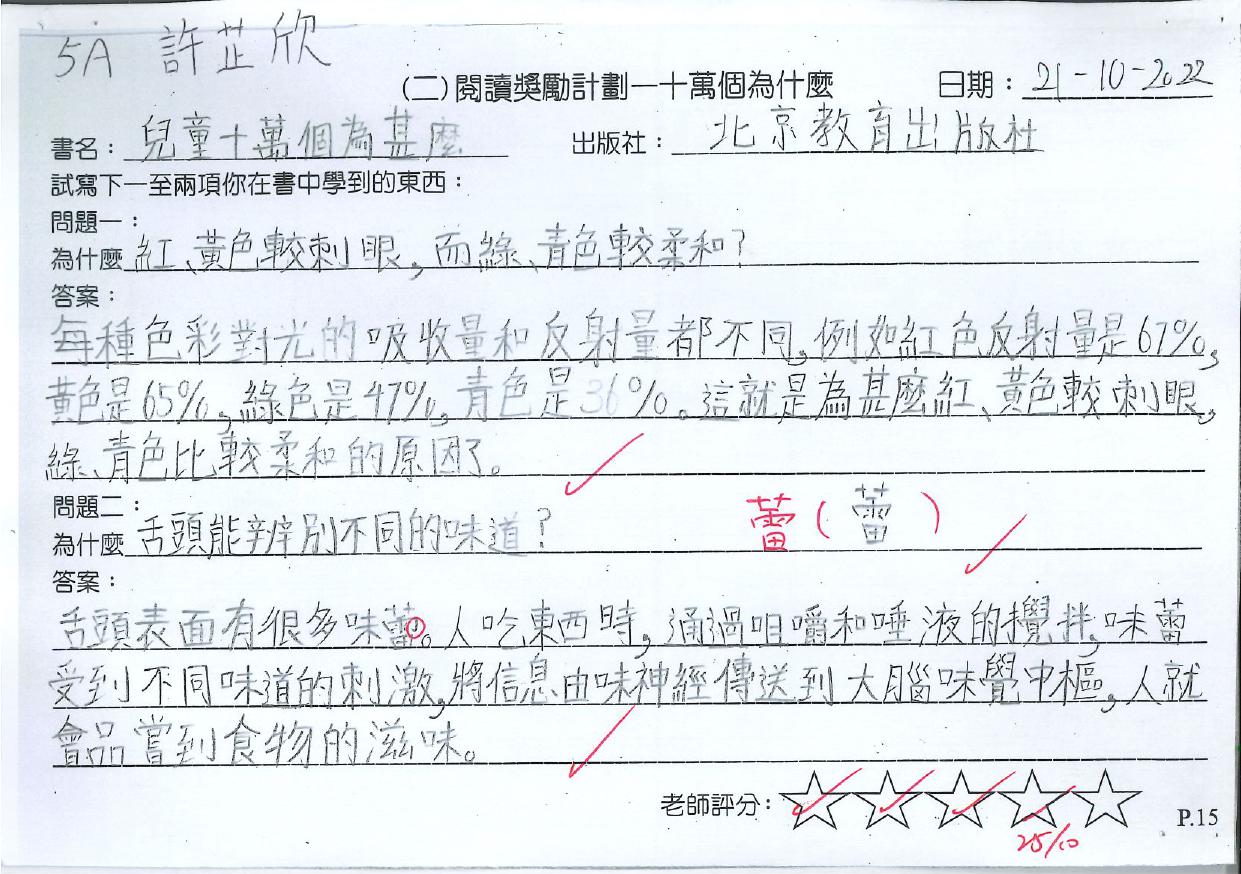 5A 許芷欣
(二)閱讀獎勵計劃—十萬個為什麼 日期：21-10-2022
書名：兒童十萬個為甚麼 出版社：北京教育出版社
試寫下一至兩項你在書中學到的東西：
問題一：
為什麼紅、黃色較刺眼，而綠、青色較柔和？
答案：
每種色彩對光的吸收量和反射量都不同，例如紅色反射量是67%，
黃色是65%，綠色是47%，青色是36%。這就是為甚麼紅、黃色較刺眼，
綠、青色比較柔和的原因了。
問題二：
為什麼舌頭能辨別不同的味道？
蕾(蕾)
答案：
舌頭表面有很多味蕾。人吃東西時，通過咀嚼和唾液的攪拌，味蕾
受到不同味道的刺激，將信息由味神經傳送到大腦味覺中樞，人就
會品嘗到食物的滋味。
老師評分：
25/10
P.15